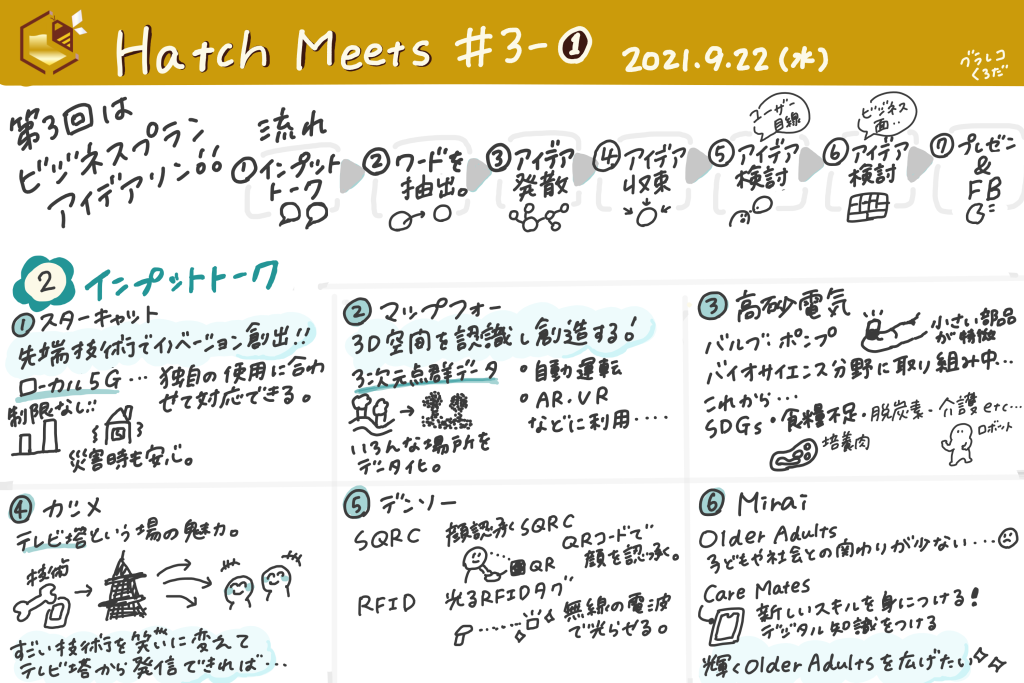 Hatch Meets #3-①
2021.9.22(水)
グラレコ
くろだ
第3回は
ビジネスプラン
アイデアソン!!
流れ
①インプット
トーク
②ワードを
抽出。
③アイデア
発散
④アイデア
収束
ユーザー
目線
⑤アイデア
検討
ビジネス
面..
⑥アイデア
検討
⑦プレゼン
&
FB
2 インプットトーク
①スターキャット
先端技術でイノベーション創出!!
ローカル5G… 独自の使用に合わ
せて対応できる。
制限なし!!
災害時も安心。
②マップフォー
3D空間を認識し創造する!
3次元点群データ
いろんな場所を
データ化。
・自動運転
・AR.VR
などに利用....
③高砂電気
バルブ・ポンプ
小さい部品
が特徴
バイオサイエンス分野に取り組み中...
これから...
SDGs・食糧不足・脱炭素・介護etc...
培養肉
ロボット
④カジメ
テレビ塔という場の魅力。
技術
すごい技術を笑いに変えて
テレビ塔から発信できれば...
⑤デンソー
SQRC 顔認承くSQRC
QR
QRコードで
顔を認承。
RFID 光るRFIDタグ
無線の電波
で光らせる。
⑥Mirai
Older Adults
子どもや社会との関わりが少ない...
Care Mates
新しいスキルを身につける!
デジタル知識をつける
輝くOlder Adultsを広げたい